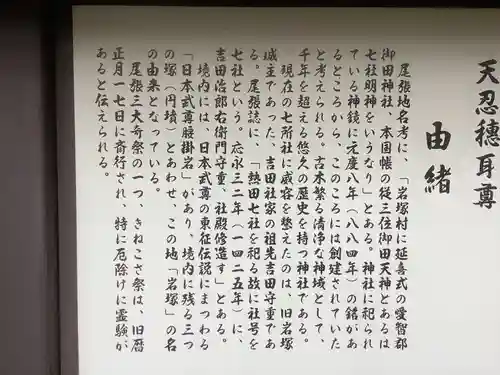 天忍穗耳尊
由緒
尾張地名考に、「岩塚村に延喜式の愛智郡
御田神社、本国帳の従三位御田天神とあるは
七社明神をいうなり」とある。神社に祀られ
ている神鏡に元慶八年(八八四年)の銘があ
るところから、このころには創建されていた
と考えられる。古木繁る清浄な神域として、
千年を超える悠久の歴史を持つ神社である。
現在の七所社に威容を整えたのは、旧岩塚
城主であった、吉田社家の祖先吉田守重であ
る。尾張誌に、「熱田七社を祀る故に社号を
七社という。応永三二年(一四二五年)に、
吉田治郎右衛門守重、社殿修造す」とある。
境内には、日本武尊の東征伝説にまつわる
「日本武尊腰掛岩」があり、境内に残る三つ
の塚(円墳)とあわせ、この地「岩塚」の名
の由来となっている。
尾張三大奇祭の一つ、きねこさ祭は、旧暦
正月一七日に斎行され、特に厄除けに霊験が
あると伝えられる。